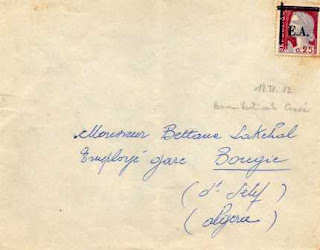 E.A.
0,25
Monsieur Bettane Lakehal
Employé gare Bougie
(dt Sétif)
(Algérie)